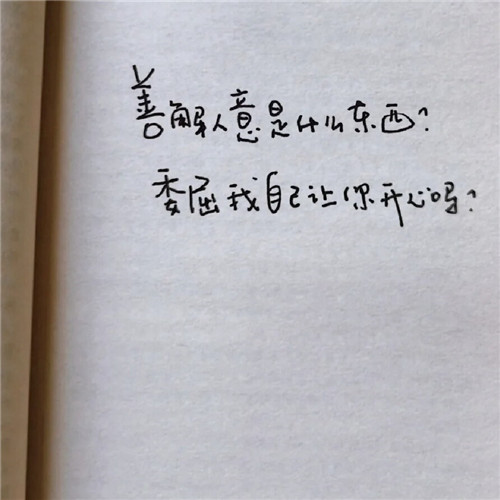 善解人意是什么东西?
委屈我自己让你开心吗?